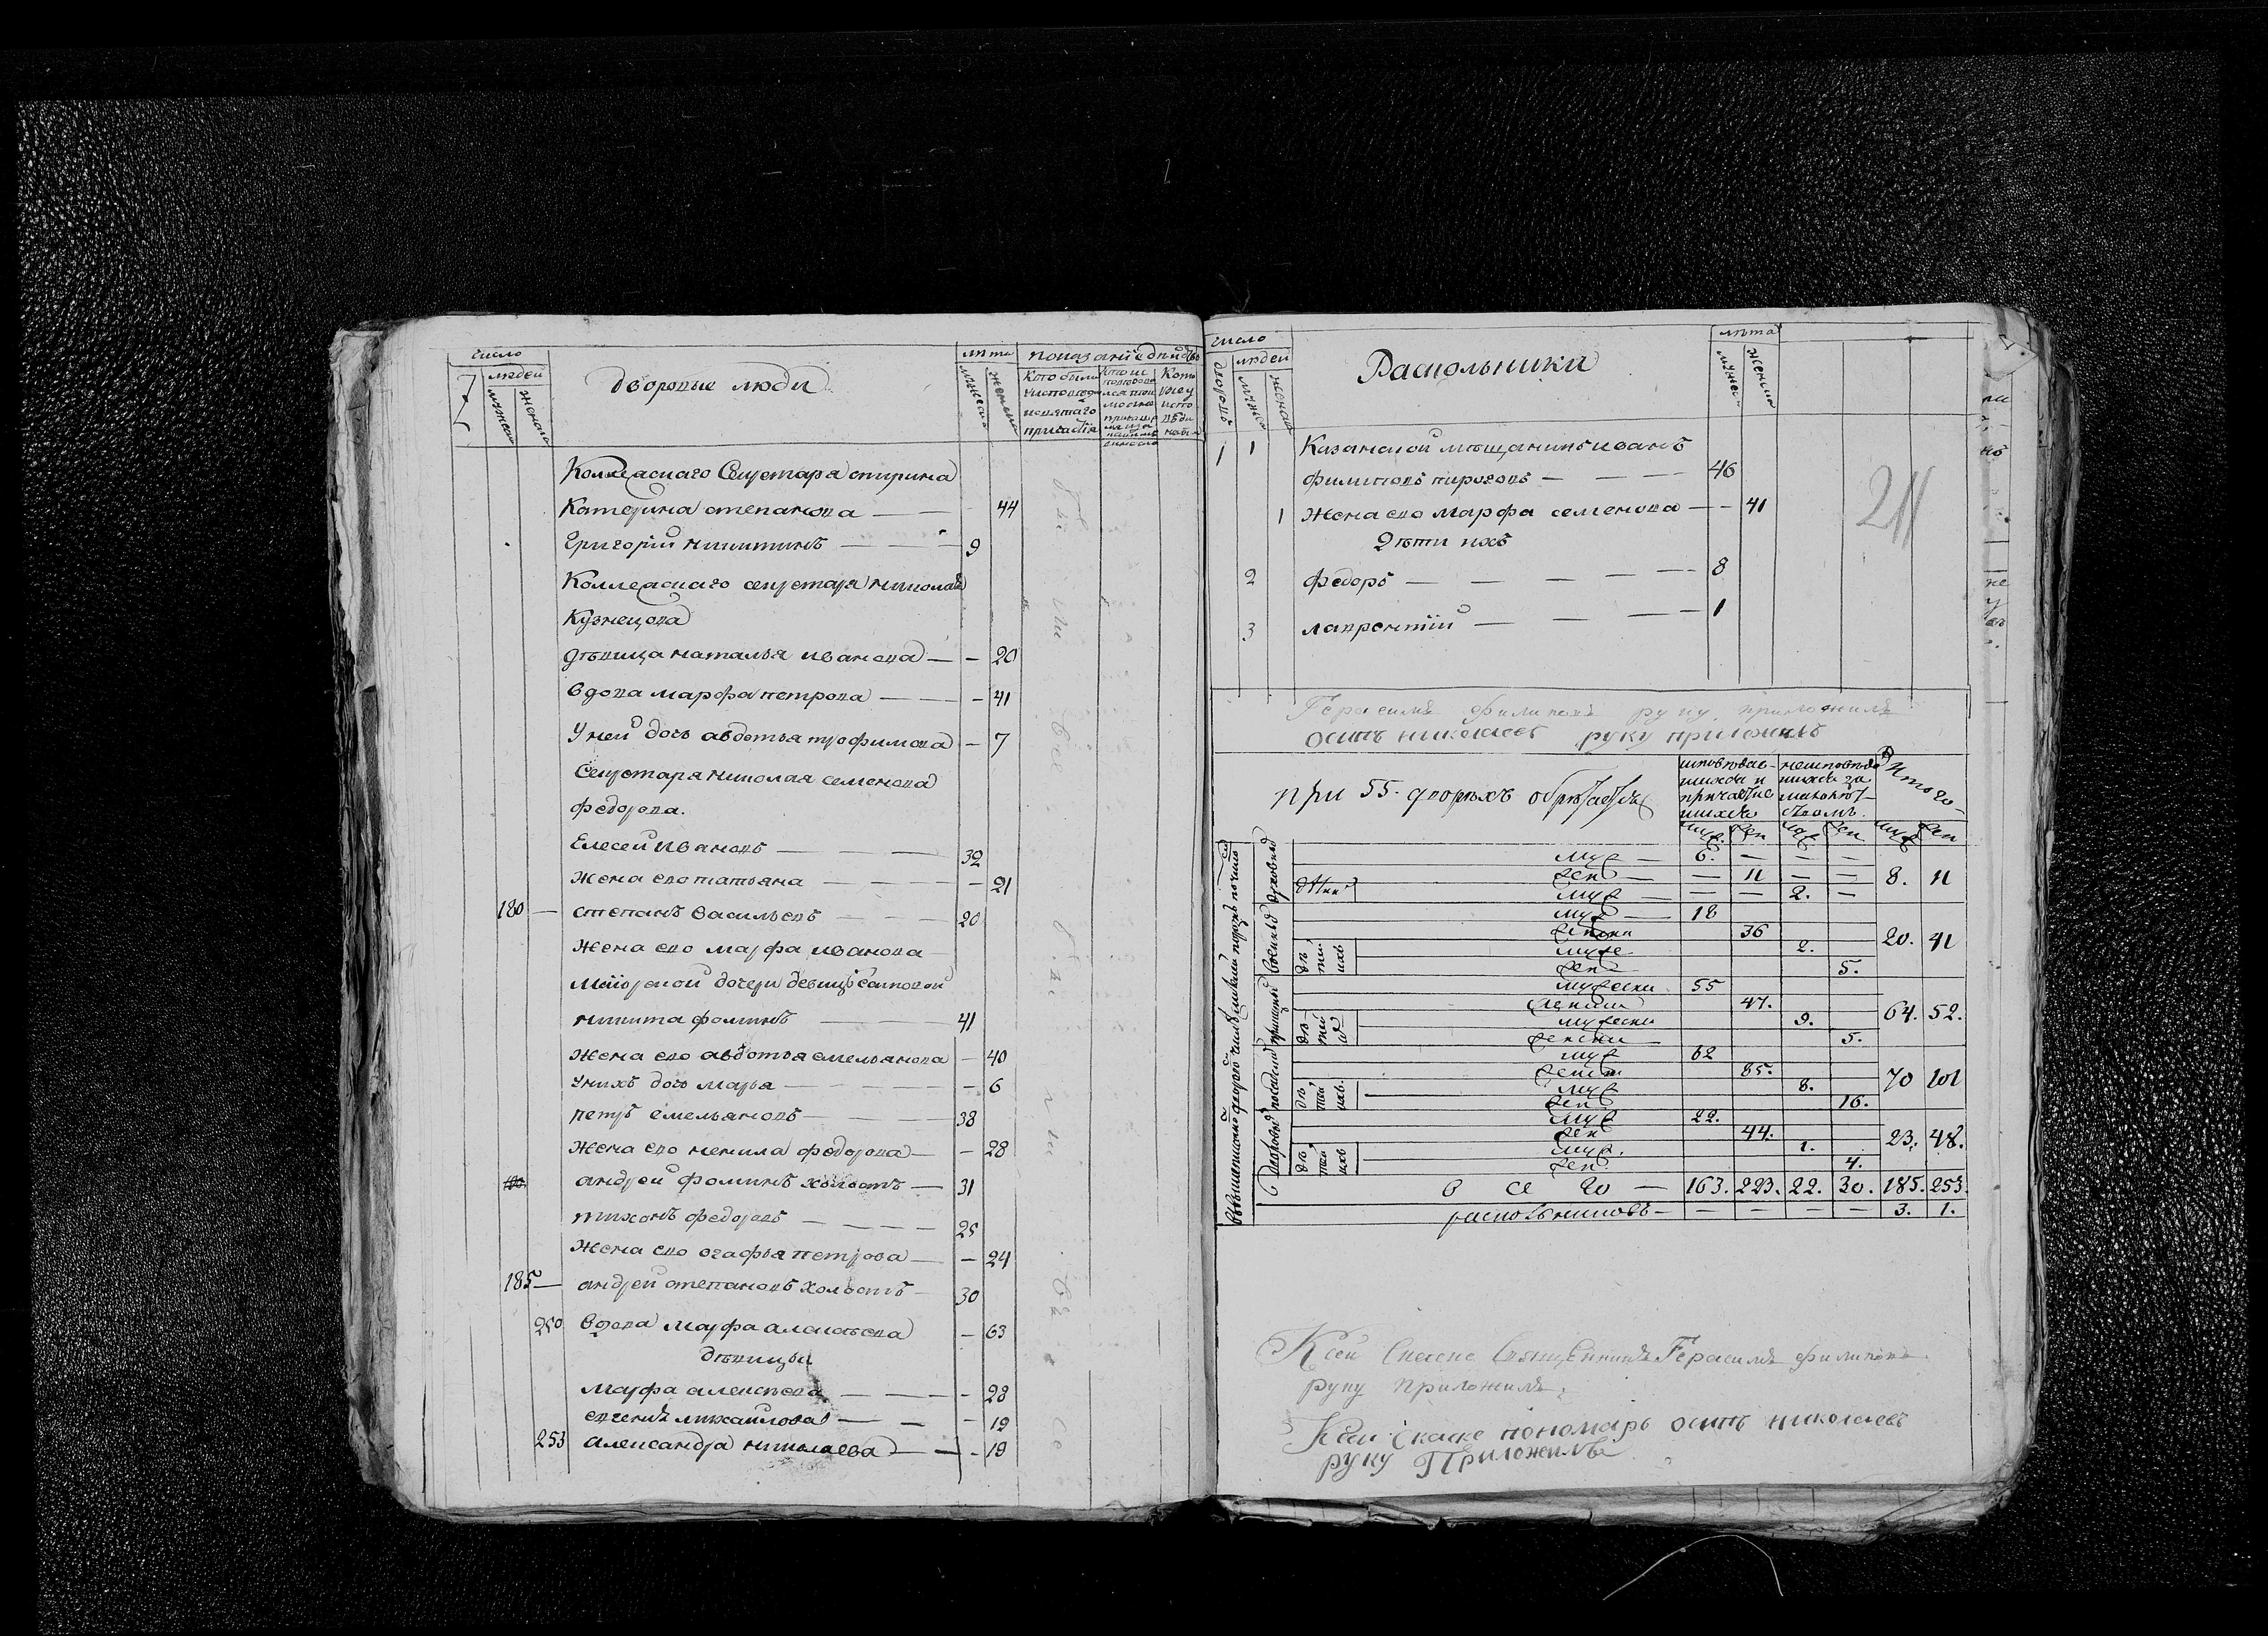 число
людей
мужеска
женска
дворовые люди
лѣта
мужеска
женска
показанiе дѣйства
кто были
у исповеди
и святаго
причастiя
Кто
у исповеди
Коллежскаго Секретаря
Катерина степанова — 44
григорiй никитинъ — 9
Коллежскаго секретаря николая
Кузнецова
дѣвица наталья иванова — 20
вдова марфа петрова — 41
У ней дочь авдотья трофимова — 7
Секретаря николая семенова
федорова.
Елесей Ивановъ — 32
жена ево татьяна — 21
180 — степанъ васильевъ — 20
жена ево марфа иванова
маiорской дочери девицы
никита фоминъ — 41
жена ево авдотья емельянова — 40
у нихъ дочь марья — 6
петръ емельяновъ — 38
жена ево ненила федорова — 28
андрей фоминъ холостъ — 31
тихонъ федоровъ — 25
жена ево огафья петрова — 24
185 — андрей степановъ холостъ — 30
250 вдова марфа алексѣева — 63
дѣвицы
марфа алексѣева — 28
евгенiя михайлова — 19
253 александра николаева — 19
были все
число
дворовъ
людей
мужеска
женска
Раскольники
лѣта
мужеска
женска
1 1 Казанской мѣщанинъ иванъ
филиповъ пироговъ — 46
1 жена ево марфа семенова — 41
дѣти ихъ
2 федоръ — 8
3 лаврентiй — 1
211
Герасимъ филиповъ руку приложилъ
осипъ николаевъ руку приложилъ
при 55. дворѣхъ обрѣтается
исповѣдав-
шихся и
причастив-
шихся
неисповѣда
шихся за
малолѣт-
ствомъ.
Итого
муж. жен муж жен муж жен
духовныхъ
муж — 6. — — —
жен — — 11 — — 8. 11
муж — — — 2. —
военныхъ
муж — 18
женски 36 20. 41
дѣтей ихъ
муже 2.
жен 5.
мужески 55
женски 47. 64. 52.
мужески 9.
женски 5.
посацкихъ
муж 62
женски 85. 70 101
дѣтей ихъ
муж 8.
жен 16.
дворовыхъ
муж 22.
жен 44. 23. 48.
дѣтей ихъ
муж. 1.
жен 4.
всего — 163. 223. 22. 30. 185. 253.
раскольниковъ — — — — — 3. 1.
К сей скаске священникъ Герасимъ филиповъ
руку приложилъ.
К сей скаске пономарь осипъ николаевъ
руку Приложилъ